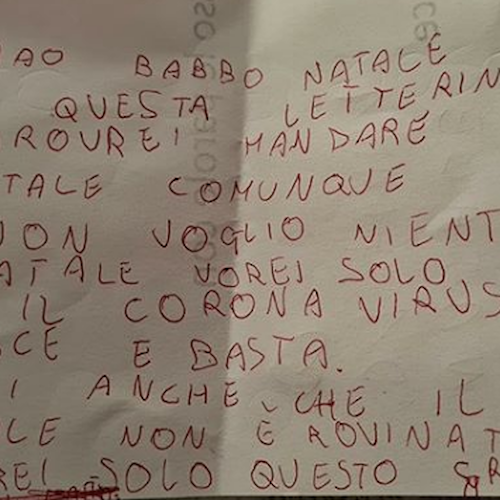 AO BABBO NATALE
QUESTA LETTERIN
ROVREI MANDARE
TALE COMUNQUE
NON VOGLIO NIENT
ATALE VOREI SOLO
IL CORONA VIRUS
CE E BASTA.
I ANCHE CHE IL
LE NON È ROVINAT
REI SOLO QUESTO